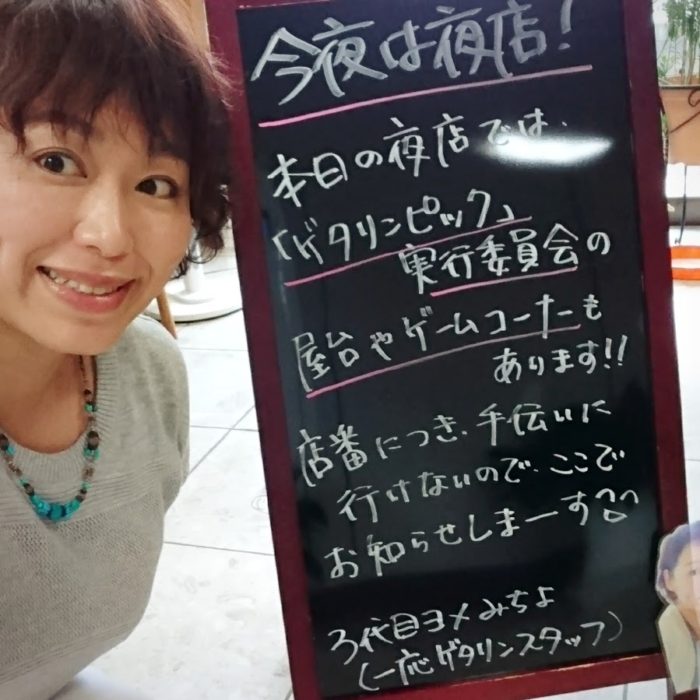 今夜は夜店!
本日の夜店では、
「ゲタリンピック」
実行委員会の
屋台やゲームコーナーも
あります!!
店番につき、手伝いに
行けないので、ここで
お知らせしまーす
3代目ヨメみちよ
(一応ゲタリンスタッフ)